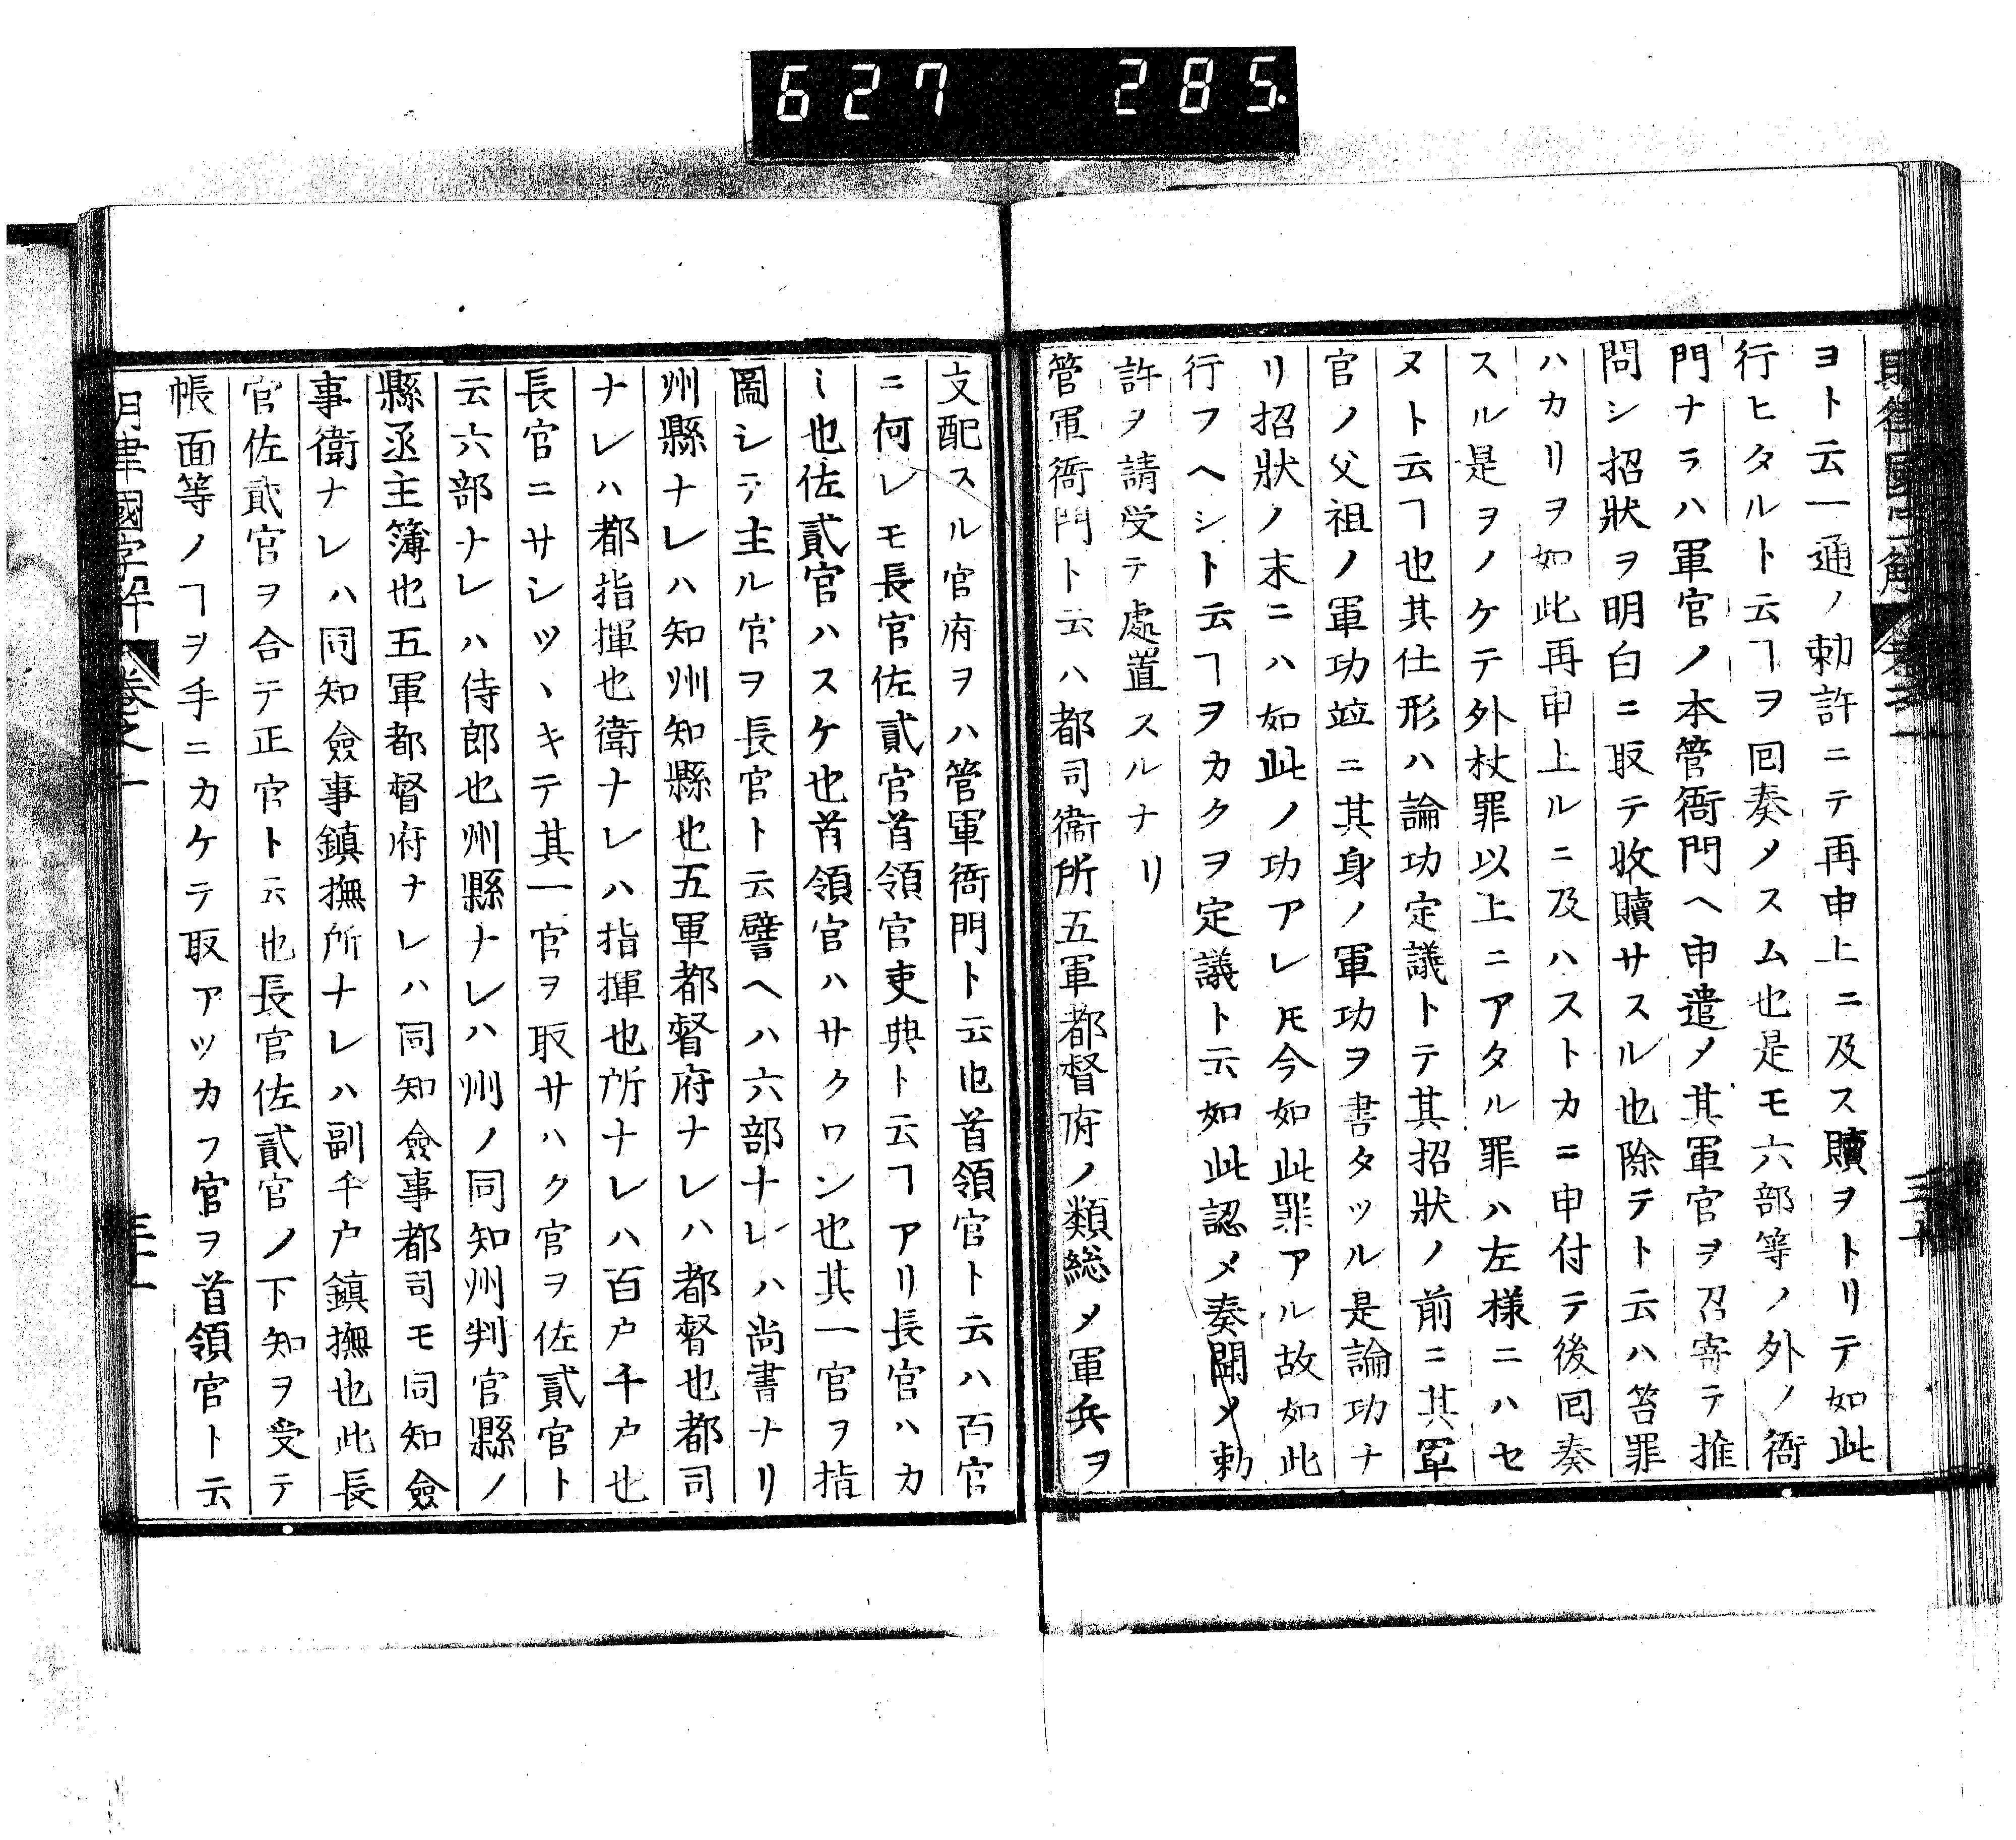 627 285.
ヨト云一通ノ勅許ニテ再申上ニ及ス贖ヲトリテ如此
行ヒタルト云ヿヲ囘奏メスム也是モ六部等ノ外ノ衙
門ナラハ軍官ノ本管衙門ヘ申遣メ其軍官ヲ召寄テ推
問シ招狀ヲ明白ニ取テ收贖サスル也除テト云ハ笞罪
ハカリヲ如此再申上ルニ及ハストカニ申付テ後囘奏
スル是ヲノケテ外杖罪以上ニアタル罪ハ左樣ニハセ
ヌト云ヿ也其仕形ハ論功定議トテ其招狀ノ前ニ其軍
官ノ父祖ノ軍功竝ニ其身ノ軍功ヲ書タツル是論功ナ
リ招狀ノ末ニハ如此ノ功アレ𪜈今如此罪アル故如此
行フヘシト云ヿヲカクヲ定議ト云如此認メ奏聞メ勅
許ヲ請受テ處置スルナリ
管軍衙門ト云ハ都司衞所五軍都督府ノ類総メ軍兵ヲ
支配スル官府ヲハ管軍衙門ト云也首領官ト云ハ百官
ニ何レモ長官佐貳官首領官吏典ト云ヿアリ長官ハカ
ミ也佐貳官ハスケ也首領官ハサクワン也其一官ヲ指
圖シテ主ル官ヲ長官ト云譬ヘハ六部ナレハ尚書ナリ
州縣ナレハ知州知縣也五軍都督府ナレハ都督也都司
ナレハ都指揮也衛ナレハ指揮也所ナレハ百户千户也
長官ニサシツヽキテ其一官ヲ取サハク官ヲ佐貳官ト
云六部ナレハ侍郎也州縣ナレハ州ノ同知州判官縣ノ
縣丞主簿也五軍都督府ナレハ同知僉事都司モ同知僉
事衛ナレハ同知僉事鎮撫所ナレハ副千户鎮撫也此長
官佐貳官ヲ合テ正官ト云也長官佐貳官ノ下知ヲ受テ
帳面等ノヿヲ手ニカケテ取アツカフ官ヲ首領官ト云
明律國字解 卷之一 三十一